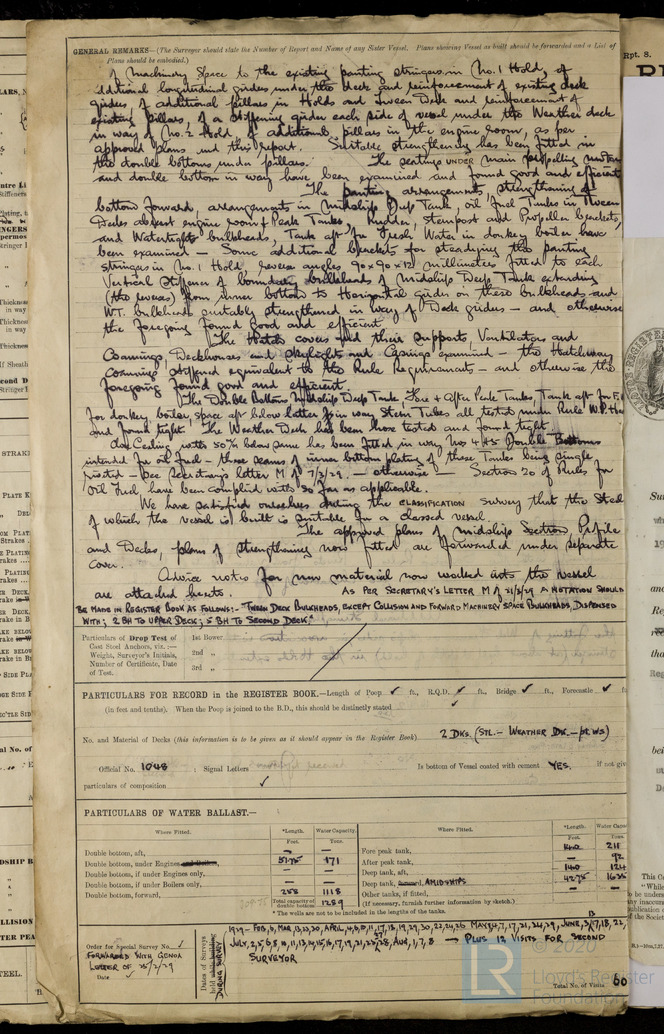 GENERAL REMARKS—(The Surveyor should state the Number of Report and Name of any Sister Vessel. Plans showing Vessel as built should be forwarded and a List of
Plans should be embodied.)
of Machinery Space to the existing panting stringers in No.1 Hold, of
additional longitudinal girders under the deck and reinforcement of existing deck
girders, of additional pillars in Holds and Tween Deck and reinforcement of
existing pillars, of a stiffening girder each side of vessel under the Weather deck
in way of No. 2 Hold, of additional pillars in the engine room, as per
approved plans and this report. Suitable strengthening has been fitted in
the double bottoms under pillars. The seatings UNDER main propelling motors
and double bottom in way have been examined and found good and efficient
The panting arrangements, strengthening of
bottom forward, arrangements in midship Deep Tank, oil fuel Tanks in Tween
Decks abreast engine room & Peak Tanks, Rudder, sternpost and Propeller brackets,
and Watertight bulkheads, Tank aft for Fresh Water in donkey boiler have
been examined — Some additional brackets for steadying the panting
stringers in No.1 Hold, reverse angles 90 x 90 x 12 millimetres fitted to each
Vertical stiffener of boundary bulkheads of midship Deep Tank extending
(the reverses) from inner bottom to Horizontal girder on these bulkheads and
WT. bulkheads suitably strengthened in way of Deck girders — and otherwise
the foregoing found good and efficient.
The Hatch covers and their supports, Ventilators and
Coamings, Deckhouses and Skylights and Casings examined — the Hatchway
coamings stiffened equivalent to the Rule Requirements — and otherwise the
foregoing found good and efficient.
The Double Bottoms Midship Deep Tank, Fore & After Peak Tanks, Tank aft for F.
for donkey boiler, space aft below latter & in way Stern Tubes all tested under Rule W.P. Head
and found tight. The Weather Deck has been hose tested and found tight.
Ceiling with below same has been fitted in way No 4 Double Bottoms
intended for oil fuel — the seams of inner bottom plating of these Tanks being single
riveted — See Secretary's letter M of 7/2/29. — otherwise — Section 20 of Rules for
Oil fuel have been complied with so far as applicable.
We have satisfied ourselves during the CLASSIFICATION survey that the steel
of which the vessel is built is suitable for a classed vessel.
The approved plans of midship Section Profile
and Decks, plans of strengthening now fitted are forwarded under separate
cover.
Advice notes for new material now worked into the vessel
are attached hereto. AS PER SECRETARY'S LETTER M of 21/8/29 A NOTATION SHOULD
BE MADE IN REGISTER BOOK AS FOLLOWS:- TWEEN DECK BULKHEADS, EXCEPT COLLISION AND FORWARD MACHINERY SPACE BULKHEADS, DISPENSED
WITH; 2 BH TO UPPER DECK; 5 BH TO SECOND DECK.
Particulars of Drop Test of 1st Bower
Cast Steel Anchors, viz.:—
Weight, Surveyor's Initials, 2nd „
Number of Certificate, Date
of Test. 3rd „
PARTICULARS FOR RECORD in the REGISTER BOOK.—Length of Poop ✓ ft., R.Q.D. ✓ ft., Bridge ✓ ft., Forecastle ✓ ft
(in feet and tenths). When the Poop is joined to the B.D., this should be distinctly stated ✓
No. and Material of Decks (this information is to be given as it should appear in the Register Book). 2 DKS. (STL. - WEATHER DK. - pt. WS)
Official No. 1048 ; Signal Letters Is bottom of Vessel coated with cement YES. if not giv
particulars of composition ✓
PARTICULARS OF WATER BALLAST.—
Where Fitted. *Length. Water Capacity. Where Fitted. *Length. Water Capac
Feet. Tons. Feet. Tons.
Double bottom, aft, — — Fore peak tank, 211
Double bottom, under Engines 57.75 171 After peak tank, — 92
Double bottom, if under Engines only, — — Deep tank, aft, 140 124
Double bottom, if under Boilers only, — — Deep tank, AMIDSHIPS 42.75 1635
Double bottom, forward, 258 1118 Other tanks, if fitted, — —
Total capacity of double bottom 1289 (If necessary, furnish further information by sketch.)
* The wells are not to be included in the lengths of the tanks.
Order for Special Survey No. ✓
FORWARDED WITH GENOA
LETTER OF 25/2/29
Date
Dates of Surveys
held
DURING SURVEY
1929 - FEB, 6, MAR, 13, 20, APRIL, 4, 6, 8, 11, 17, 18, 19, 29, 30, 22, 24, 26 MAY, 3, 7, 17, 21, 24, 29, JUNE, 3, 17, 18, 22,
JULY, 2, 5, 6, 8, 10, 11, 13, 14, 15, 16, 17, 19, 21, 23, 28, AUG, 1, 7, 8 → PLUS 12 VISITS FOR SECOND
SURVEYOR
Total No. of Visits 60
© 2020
LR
Lloyd's Register
Foundation
Rpt. 8.